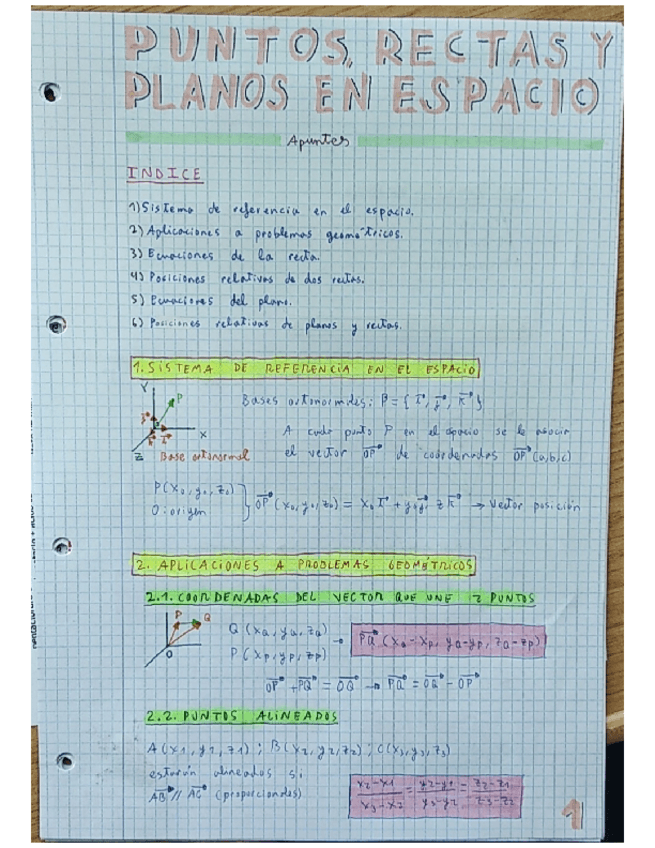 PUNTOS, RECTAS Y
PLANOS EN ESPACIO
Apuntes
INDICE
1) Sistema de referencia en el espacio.
2) Aplicaciones a problemas geométricos.
3) Ecuaciones de la recta.
4) Posiciones relativas de dos rectas.
5) Ecuaciones del plano.
6) Posiciones relativas de planos y rectas.
1. SISTEMA DE REFERENCIA EN EL ESPACIO
Y P
X
Z Base ortonormal
Bases ortonormales: B = { i⃗, j⃗, k⃗ }
A cada punto P en el espacio se le asocia
el vector OP⃗ de coordenadas OP⃗ (a,b,c)
P(x₀, y₀, z₀)
O: origen } OP⃗ (x₀, y₀, z₀) = x₀ i⃗ + y₀ j⃗, z k⃗ → Vector posición
2. APLICACIONES A PROBLEMAS GEOMÉTRICOS
2.1. COORDENADAS DEL VECTOR QUE UNE 2 PUNTOS
P Q
O
Q (xQ, yQ, zQ) → PQ⃗ (xQ-xP, yQ-yP, zQ-zP)
P (xP, yP, zP)
OP⃗ + PQ⃗ = OQ⃗ → PQ⃗ = OQ⃗ - OP⃗
2.2. PUNTOS ALINEADOS
A(x1, y1, z1); B(x2, y2, z2); C(x3, y3, z3)
estarán alineados si
AB⃗ // AC⃗ (proporcionales)
x2-x1/x3-x2 = y2-y1/y3-y2 = z2-z1/z3-z2
1